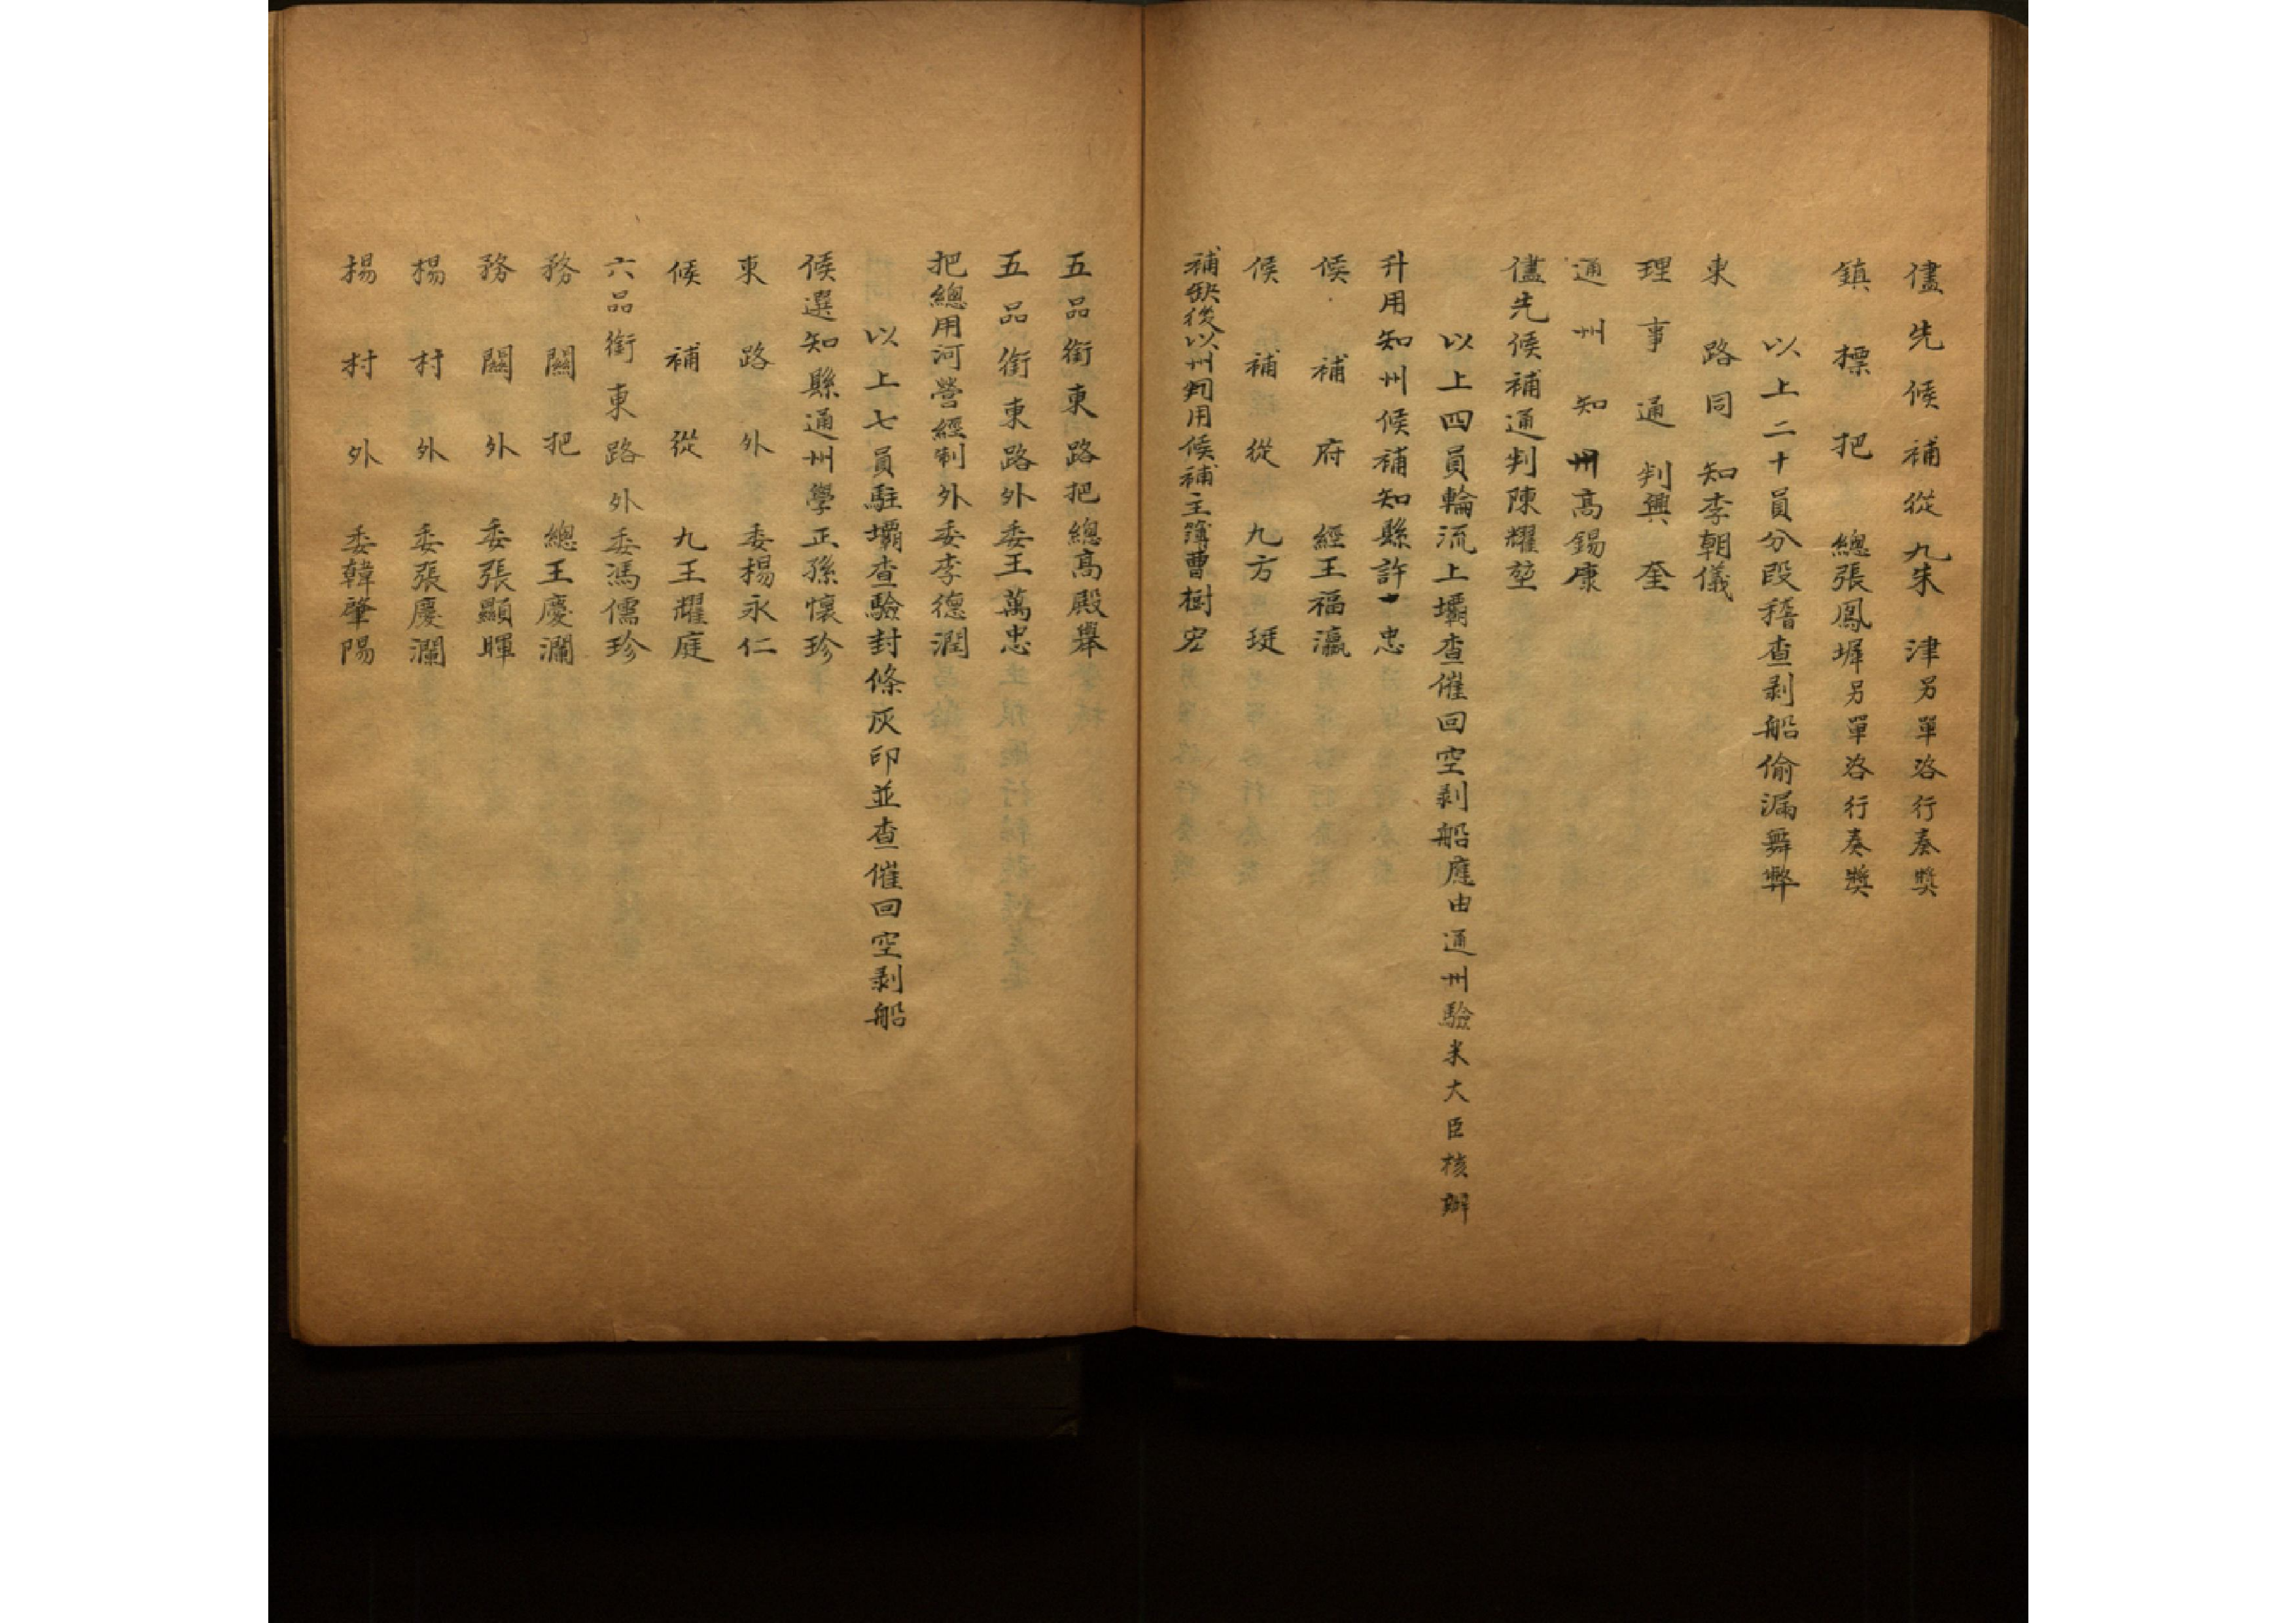 儘先候補從九朱津另單咨行奏獎
鎮標把總張鳳墀另單咨行奏獎
以上二十員分段稽查剥船偷漏舞弊
東路同知李朝儀
理事通判興奎
通州知州高錫康
儘先候補通判陳耀堃
以上四員輪流上壩查催回空剥船應由通州驗米大臣核辦
升用知州候補知縣許忠
候補府經王福瀛
候補從九方珽
補缺後以州判用候補主簿曹樹宏
五品銜東路把總高殿舉
五品銜東路外委王萬忠
把總用河營經制外委李德潤
以上七員駐壩查驗封條灰印並查催回空剥船
候選知縣通州學正孫懷珍
東路外委楊永仁
候補從九王耀庭
六品銜東路外委馮儒珍
務關把總王慶瀾
務關外委張顯暉
楊村外委張慶瀾
楊村外委韓肇陽